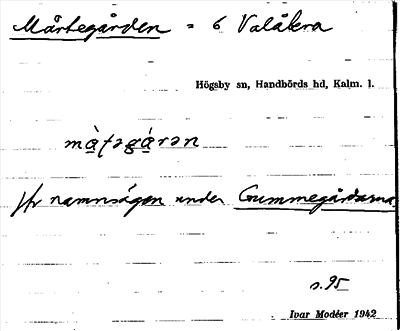 Mårtegården = 6 Valåkra
Högsby sn, Handbörds hd, Kalm. l.
mà̱ʈəgá̱rən
jfr namnsägen under Gummegårdarna
s. 95
Ivar Modéer 1942